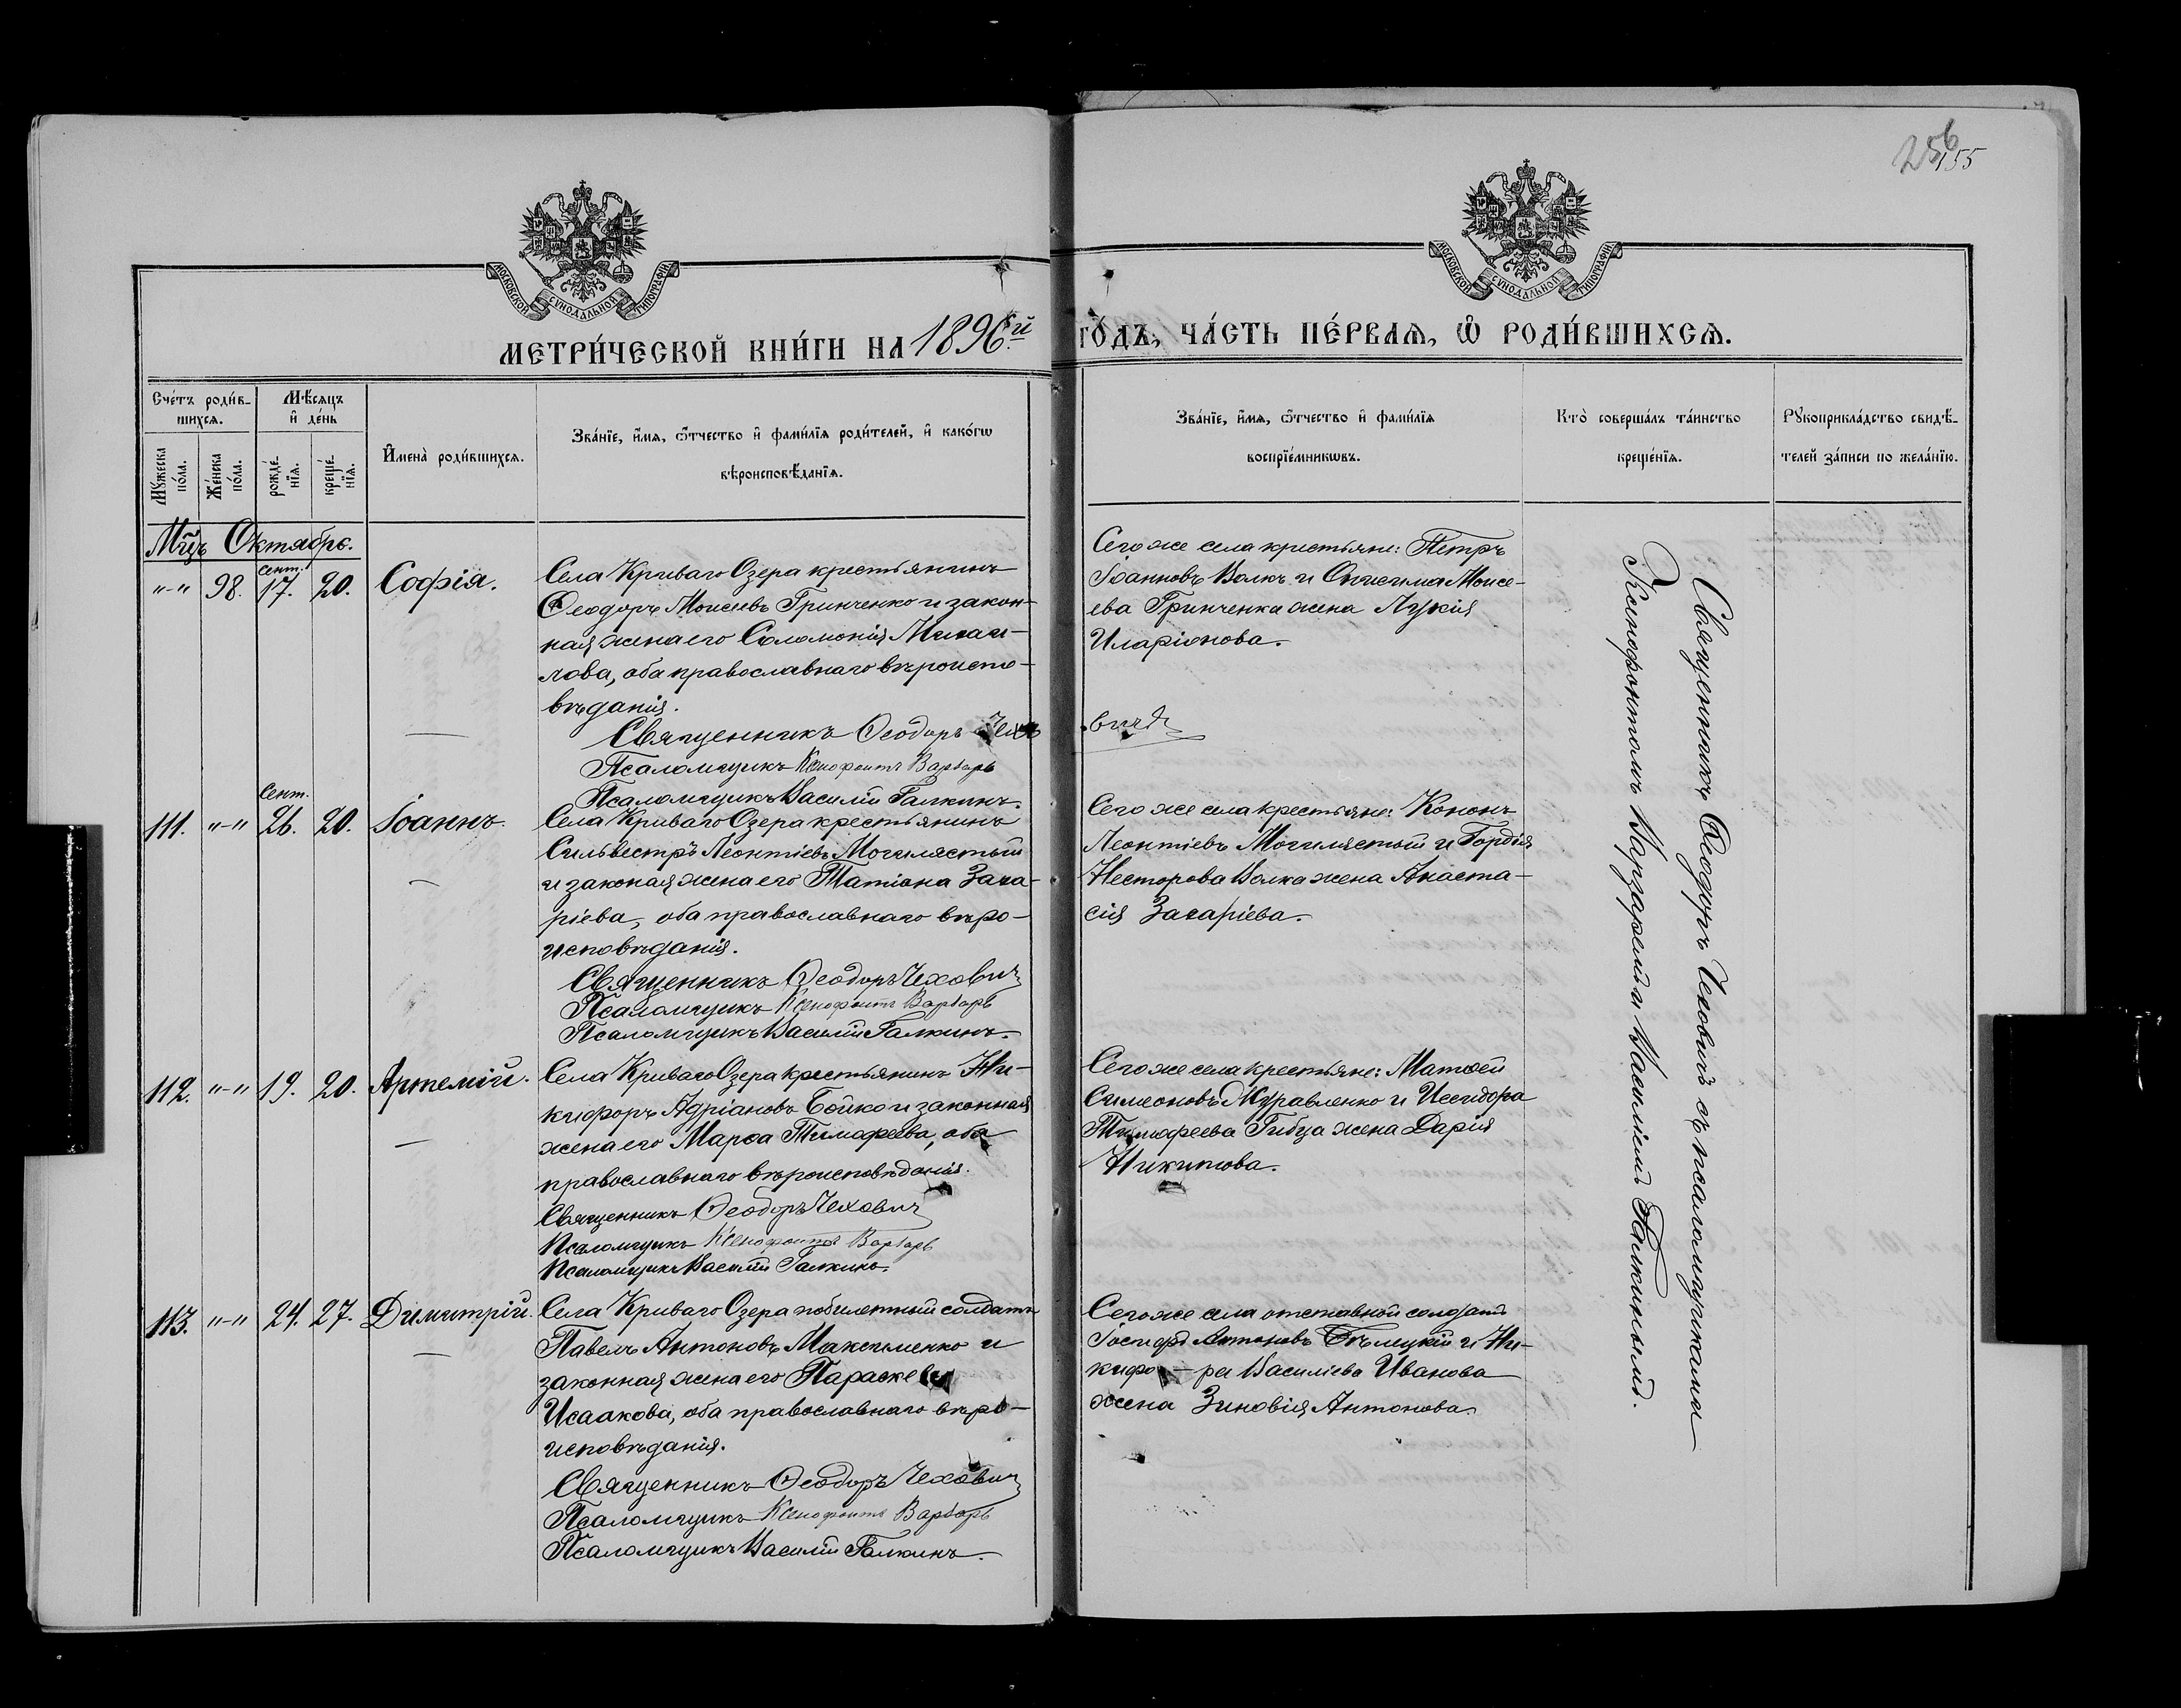 256
155
МОСКОВСКОЙ СѴНОДАЛЬНОЙ ТИПОГРАФІИ
МОСКОВСКОЙ СѴНОДАЛЬНОЙ ТИПОГРАФІИ
МЕТРИ́ЧЕСКОЙ КНИ́ГИ НА 1896й го́дъ, ЧА́СТЬ ПЕ́РВАѦ, Ѡ҆ РОДИ́ВШИХСѦ.
Сче́тъ роди́в-
шихсѧ.
Мꙋ́жеска по́ла.
Же́нска по́ла.
Мѣ́сѧцъ
и҆ де́нь
рожде́-
нїѧ.
креще́-
нїѧ.
И҆мена̀ роди́вшихсѧ.
Зва́нїе, и҆́мѧ, ѻ҆́тчество и҆ фами́лїѧ роди́телей, и҆ како́гѡ
вѣроисповѣ́данїѧ.
Зва́нїе, и҆́мѧ, ѻ҆́тчество и҆ фами́лїѧ
воспрїе́мникѡвъ.
Кто̀ соверша́лъ та́инство
креще́нїѧ.
Рꙋкоприкла́дство свидѣ́-
телей за́писи по жела́нїю.
Мцъ Октябрь.
"-" 98. сент. 17. 20. Софія.
Села Криваго Озера крестьянинъ
Ѳеодоръ Моисеевъ Гринченко и закон-
ная жена его Соломонія Михаи-
лова, оба православнаго вѣроиспо-
вѣданія.
Священникъ Ѳеодоръ Чехо
вичъ
Псаломщикъ Ксенофонтъ Варзарь
Псаломщикъ Василій Галкинъ.
Сего же села крестьяне: Петръ
Іоанновъ Волкъ и Онисима Моисе-
ева Гринченка жена Лукія
Иларіонова.
111. "-" Сент. 26. 20. Іоаннъ.
Села Криваго Озера крестьянинъ
Сильвестръ Леонтіевъ Могилястый
и законая жена его Татіана Заха-
ріева, оба православнаго вѣро-
исповѣданія.
Священникъ Ѳеодоръ Чехович
Псаломщикъ Ксенофонтъ Варзарь
Псаломщикъ Василій Галкинъ.
Сего же села крестьяне: Кононъ
Леонтіевъ Могилястый и Гордія
Несторова Волка жена Анаста-
сія Захаріева.
112. "-" 19. 20. Артемій.
Села Криваго Озера крестьянинъ Ни-
кифоръ Адріановъ Бойко и законная
жена его Марѳа Тимофеева, оба
православнаго вѣроисповѣданія.
Священникъ Ѳеодоръ Чехович
Псаломщикъ Ксенофонтъ Варзарь
Псаломщикъ Василій Галкинъ.
Сего же села крестьяне: Матѳей
Симеоновъ Журавленко и Исидора
Тимофеева Гибца жена Дарія
Никитова.
113. "-" 24. 27. Димитрій.
Села Криваго Озера побилетный солдатъ
Павелъ Антоновъ Максименко и
законная жена его Параскева
Исаакова, оба православнаго вѣро-
исповѣданія.
Священникъ Ѳеодоръ Чехович
Псаломщикъ Ксенофонтъ Варзарь
Псаломщикъ Василій Галкинъ.
Сего же села отставной солдатъ
Іосифъ Антоновъ Бѣлецкій и Ни-
кифо-ра Василіева Иванова
жена Зиновія Антонова.
Священникъ Ѳеодоръ Чеховичъ съ псаломщиками
Ксенофонтомъ Варзарей и Василіемъ Галкинымъ.